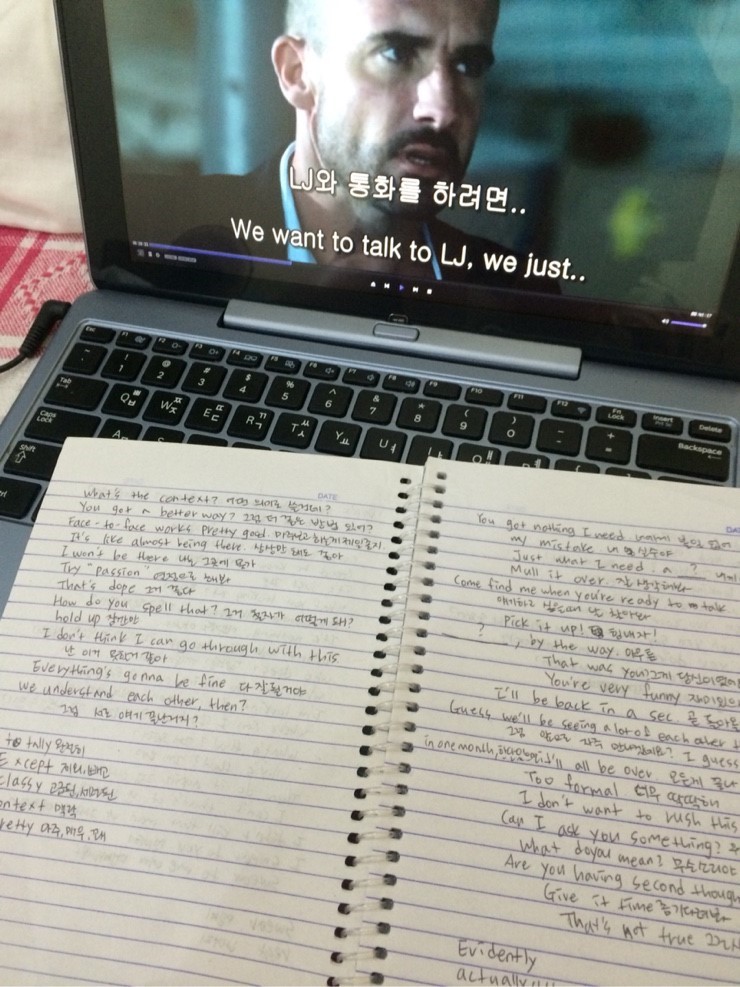 LJ와 통화를 하려면..
We want to talk to LJ, we just..
Esc F1 F2 F3 F4 F5 F6 F7 F8 F9 F10 F11 F12 Fn Lock Insert Delete
~ ! 1 @ 2 # 3 $ 4 % 5 ^ 6 & 7 * 8 ( 9 ) 0 - + = Backspace
Tab Q W E R T Y U
Caps Lock A
Shift
DATE
What's the context? 어떤 의미로 쓸건데?
You got a better way? 그럼 더 좋은 방법 있어?
Face-to-face works pretty good. 마주보고 하는게 제일좋지.
It's like almost being there. 상상만 해도 좋아
I won't be there 나는 그곳에 못가
Try "passion" 열정으로 해봐
That's dope 그거 좋다
How do you spell that? 그거 철자가 어떻게 돼?
hold up 잠깐만
I don't think I can go through with this
난 이거 못할거 같아
Everything's gonna be fine 다 잘될거야
We understand each other, then?
그럼 서로 얘기 끝난거지?
totally 완전히
Except 제외, 빼고
classy 고급진, 세련된
context 맥락
Pretty 아주, 매우, 꽤
You got nothing I need
my mistake 내 실수야
Just what I need a ?
Mull it over. 잘 생각해봐
Come find me when you're ready to talk
얘기하고 싶을때 날 찾아와
Pick it up! 힘내자!
___?___, by the way. 아무튼
That was you?
You're very funny
I'll be back in a sec.
Guess we'll be seeing a lot of each other
그럼 앞으로 자주 I guess
in one month, it'll all be over
Too formal 너무 딱딱한
I don't want to rush this
Can I ask you something?
What do you mean? 무슨소리야
Are you having second though
Give it time
That's not true
Evidently
actually